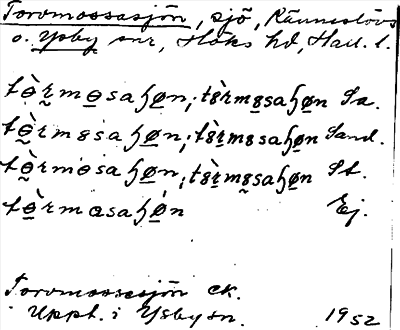 Torvmossasjön, sjö, Ränneslövs
o. Ysby snr, Höks hd, Hall. l.
tè̱r̰mo̱saɧo̱n; tɞ̀rmɞsaɧo̱n Sa.
tò̱rmɞsaɧo̱n; tɞ̀rmɞsaɧo̱n Sand.
tò̱rmɵsaɧo̱n; tɞ̀rmɞsaɧo̱n St.
tò̱rmɑsaɧo̱n Ej.
Torvmossesjön ek.
Uppt. i Ysby sn. 1952